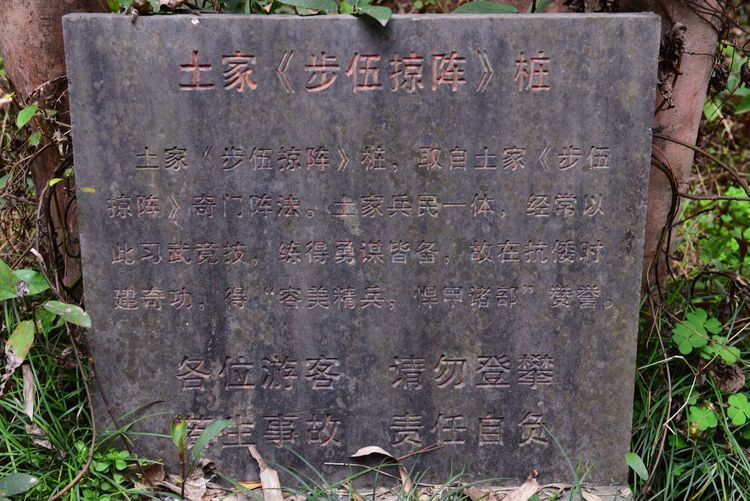 土家《步伍掠阵》桩
土家《步伍掠阵》桩，取自土家《步伍
掠阵》奇门阵法。土家兵民一体，经常以
此习武竞技，练得勇谋皆备，故在抗倭时
建奇功，得“容美精兵，悍甲诸部”赞誉。
各位游客 请勿登攀
发生事故 责任自负